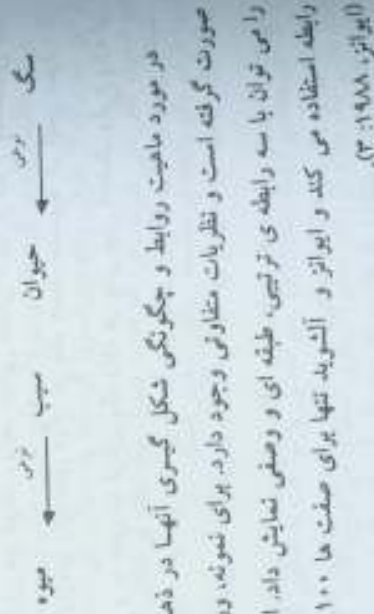 سگ نوعی حیوان سیب نوعی میوه
در مورد ماهیت روابط و چگونگی شکل گیری آنها در ذه
صورت گرفته است و نظریات متفاوتی وجود دارد. برای نمونه، در
را می توان با سه رابطه ی ترتیبی، طبقه ای و وصفی نمایش داد. ا
رابطه استفاده می کند و ایوانز و آلشوید تنها برای صفت ها ۱۰۰
(ایوانز، ۱۹۸۸: ۳).